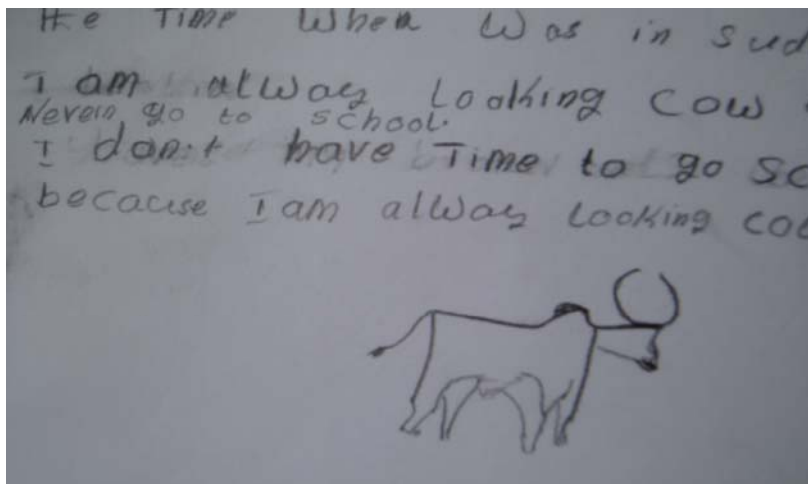 the Time When Was in sud
I am alway Looking cow
Never go to school.
I don't have Time to go sc
because I am alway Looking co